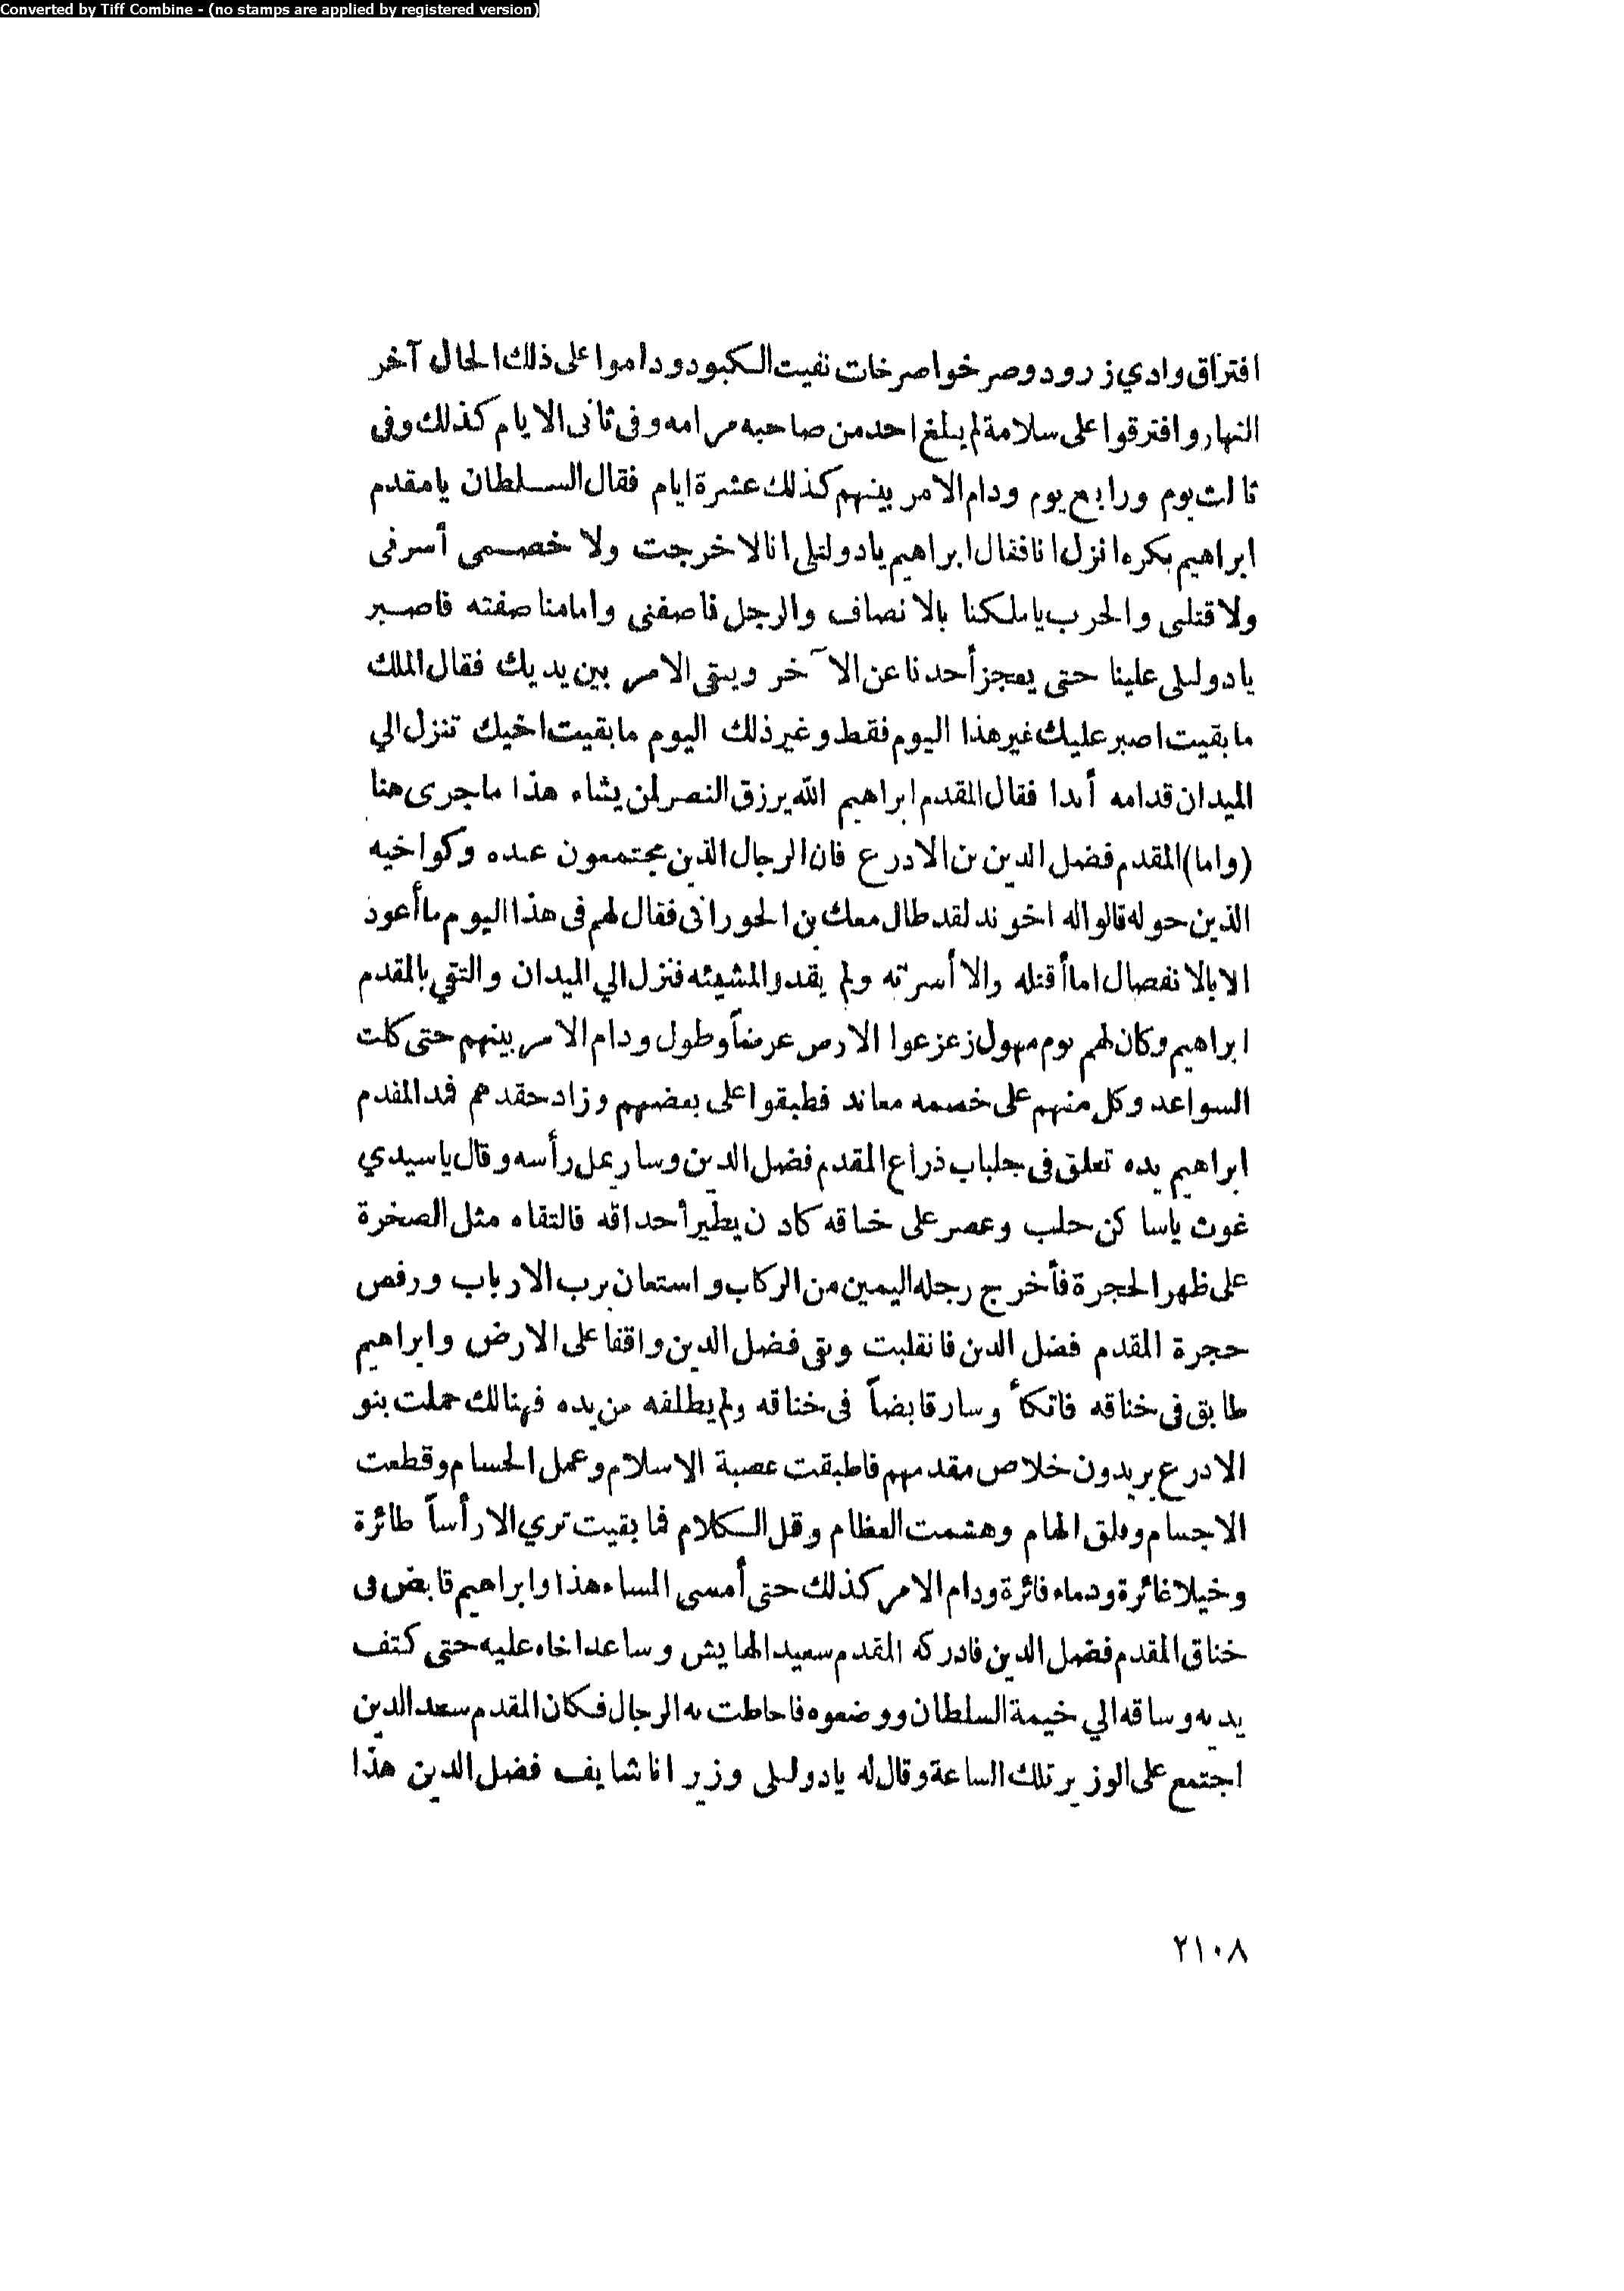 Converted by Tiff Combine - (no stamps are applied by registered version)
افتراق وادي زرود وصرخوا صرخات نفيت الكبود وداموا على ذلك الحال آخر
النهار وافترقوا على سلامة لم يبلغ احد من صاحبه مرامه وفى ثانى الايام كذلك وفى
ثالث يوم ورابع يوم ودام الامر بينهم كذلك عشرة ايام فقال السلطان يامقدم
ابراهيم بكره انزل انا فقال ابراهيم يادولتلى انا لا خرجت ولا خصمى أسرنى
ولا قتلى والحرب ياملكنا بالانصاف والرجل ناصفنى وامامنا صفته فاصبر
يادولتلى علينا حتى يعجز أحدنا عن الآخر ويبقى الامر بين يديك فقال الملك
ما بقيت اصبر عليك غير هذا اليوم فقط وغير ذلك اليوم ما بقيت اخيك تنزل الي
الميدان قدامه أبدا فقال المقدم ابراهيم الله يرزق النصر لمن يشاء هذا ما جرى هنا
(واما) المقدم فضل الدين بن الادرع فان الرجال الذين مجتمعون عنده وكواخيه
الذين حوله قالوا له اخوند لقد طال معك بن الحورانى فقال لهم فى هذا اليوم ما أعود
الا بالانفصال اما أقتله والا أسرته ولم يقدو المشيئه فنزل الي الميدان والتقي بالمقدم
ابراهيم وكان لهم يوم مهول زعزعوا الارض عرضاً وطول ودام الامر بينهم حتى كلت
السواعد وكل منهم على خصمه معاند فطبقوا على بعضهم وزاد حقدهم فمد المقدم
ابراهيم يده تعلق فى جلباب ذراع المقدم فضل الدين وسار يمل رأسه وقال ياسيدي
غوث ياساكن حلب وعصر على خناقه كاد ن يطير أحداقه فالتقاه مثل الصخرة
على ظهر الحجرة فأخرج رجله اليمين من الركاب واستعان برب الارباب ورفص
حجرة المقدم فضل الدين فانقلبت وبقى فضل الدين واقفا على الارض وابراهيم
طابق فى خناقه فاتكأ وسار قابضاً فى خناقه ولم يطلقه من يده فهنالك حملت بنو
الادرع يريدون خلاص مقدمهم فاطبقت عصبة الاسلام وعمل الحسام وقطعت
الاجسام وفلق الهام وهشمت العظام وقل الكلام فما بقيت تري الا رأساً طائرة
وخيلا غائرة ودماء فائرة ودام الامر كذلك حتى أمسى المساء هذا وابراهيم قابض فى
خناق المقدم فضل الدين فادركه المقدم سعيد الهايش وساعد اخاه عليه حتى كتف
يديه وساقه الي خيمة السلطان ووضعوه فاحاطت به الرجال فكان المقدم سعد الدين
اجتمع على الوزير تلك الساعة وقال له يادولتلى وزير انا شايف فضل الدين هذا
٢١٠٨